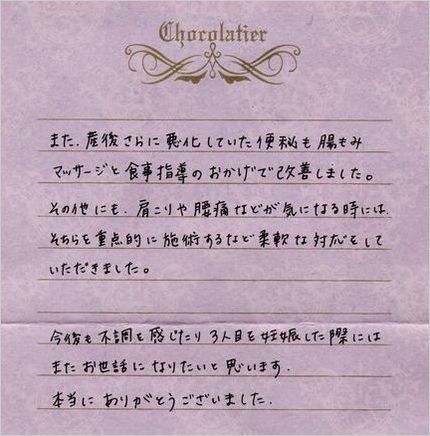 Chocolatier
また、産後さらに悪化していた便秘も腸もみ
マッサージと食事指導のおかげで改善しました。
その他にも、肩こりや腰痛などが気になる時には、
そちらを重点的に施術するなど柔軟な対応をして
いただきました。
今後も不調を感じたり3人目を妊娠した際には
またお世話になりたいと思います。
本当にありがとうございました。